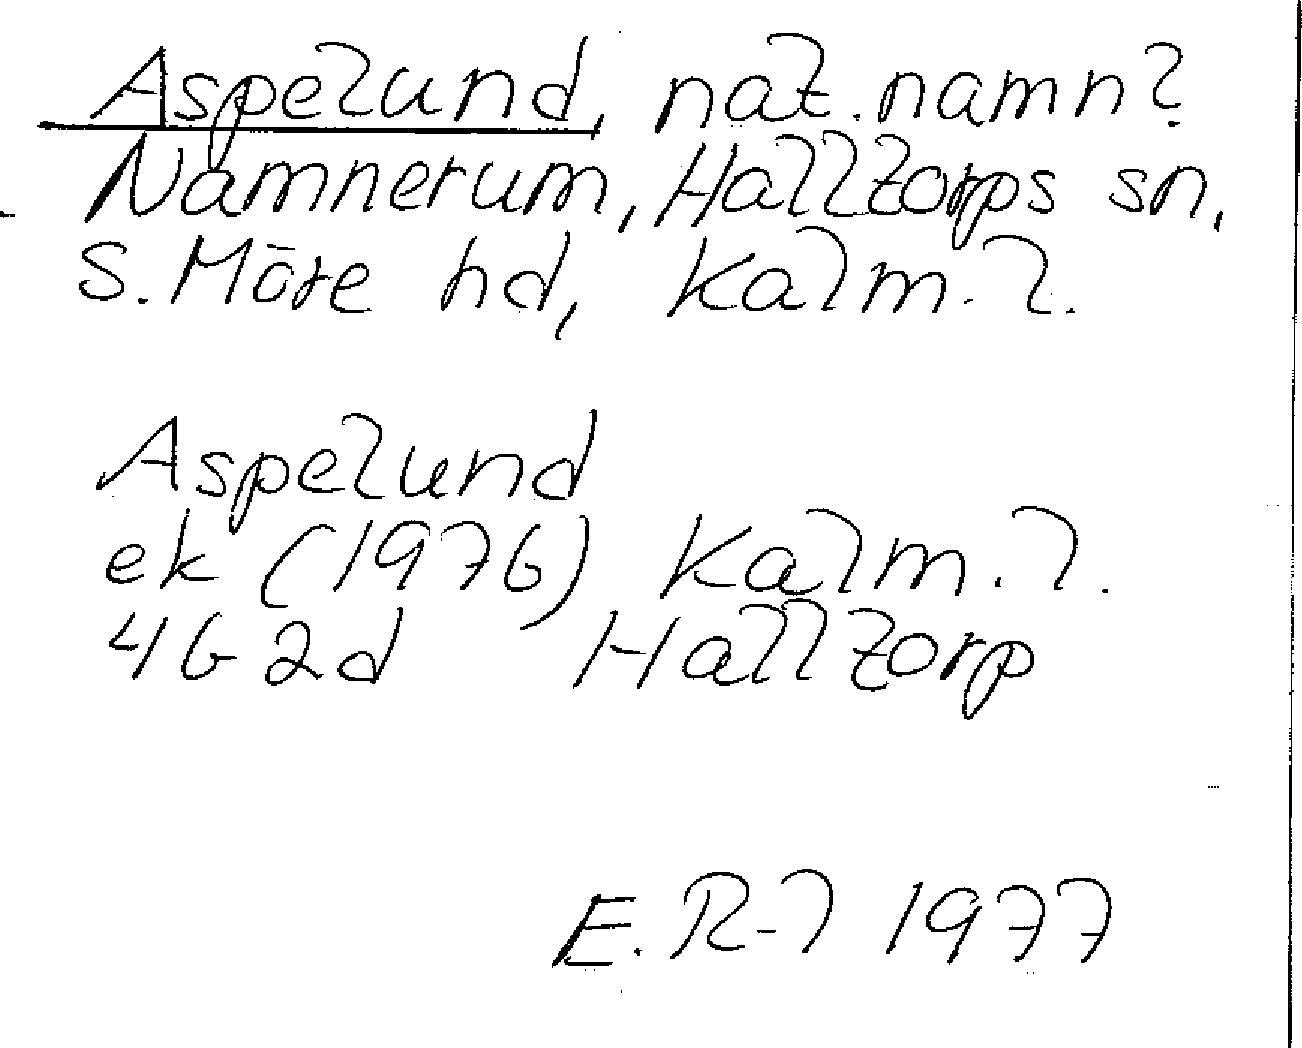 Aspelund, nat.namn?
Namnerum, Halltorps sn,
S. Möre hd, Kalm. l.
Aspelund
ek (1976) Kalm. l.
4G2d Halltorp
E. R-l 1977